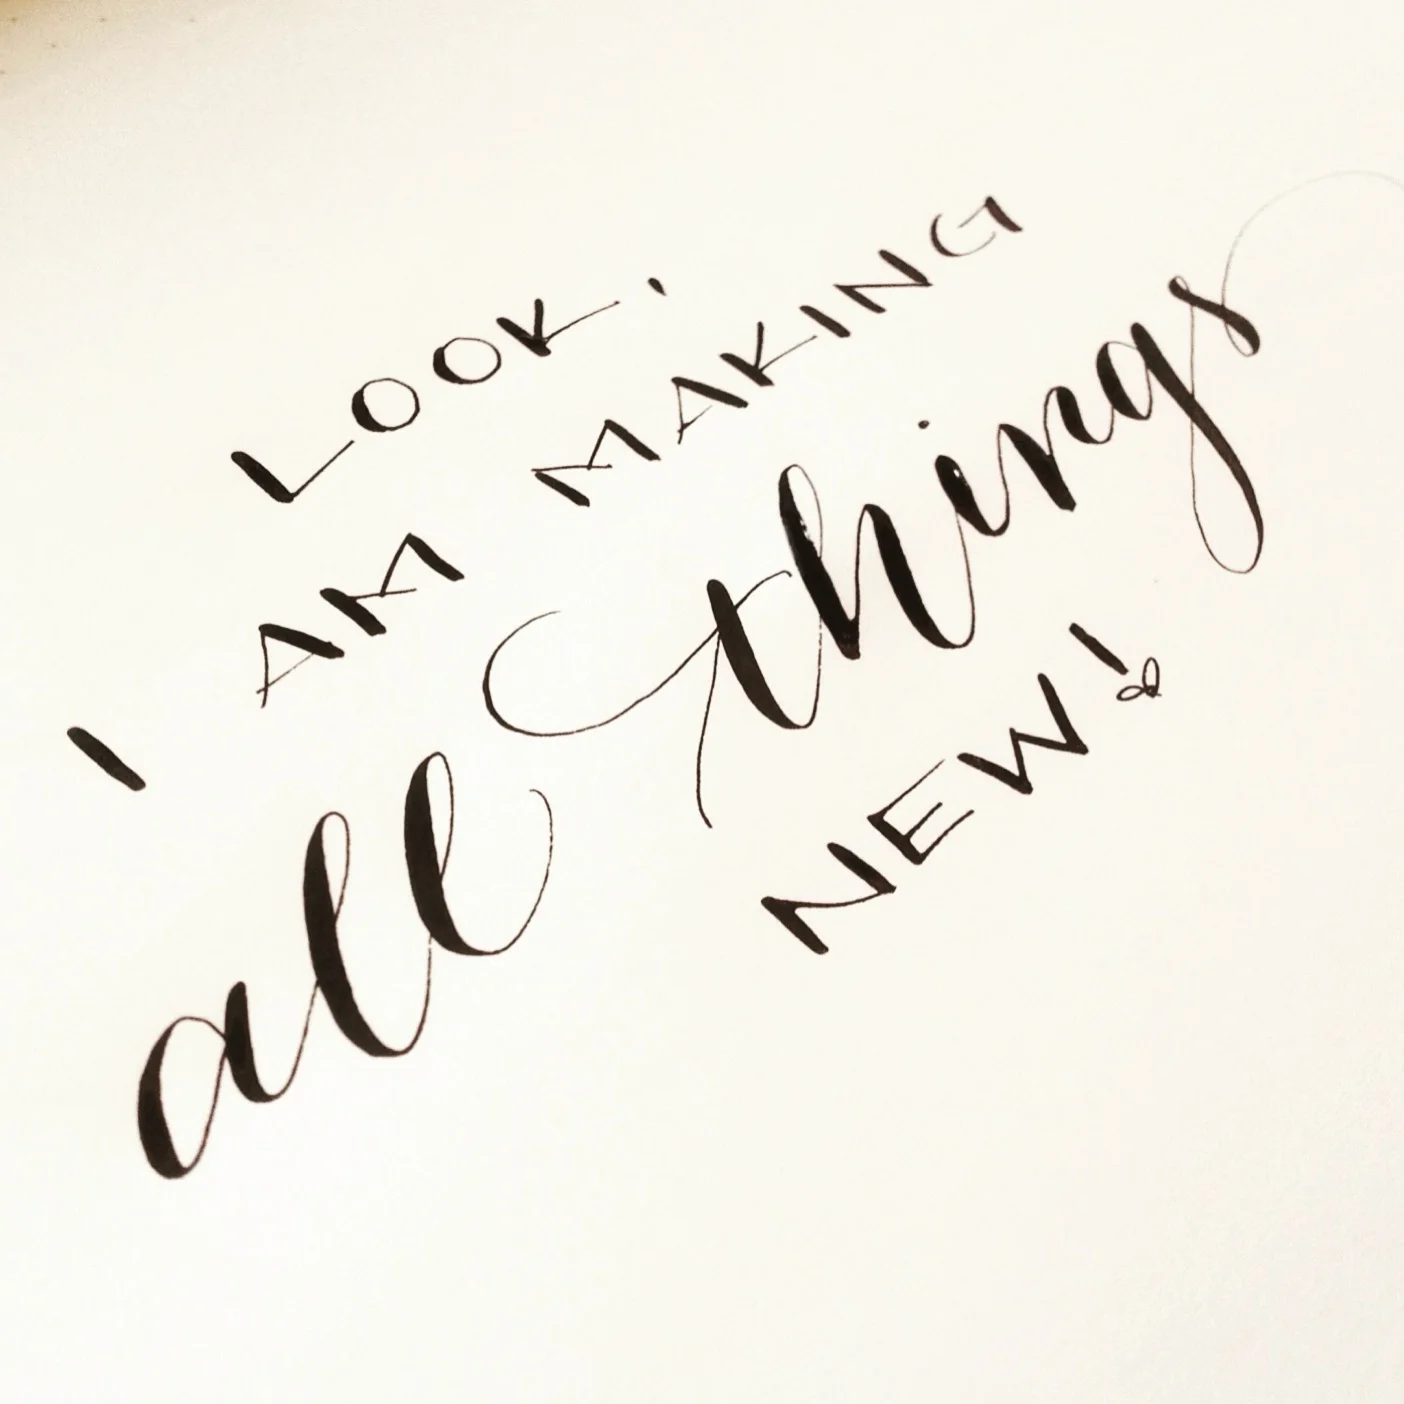 LOOK,
I AM MAKING
all things
NEW!